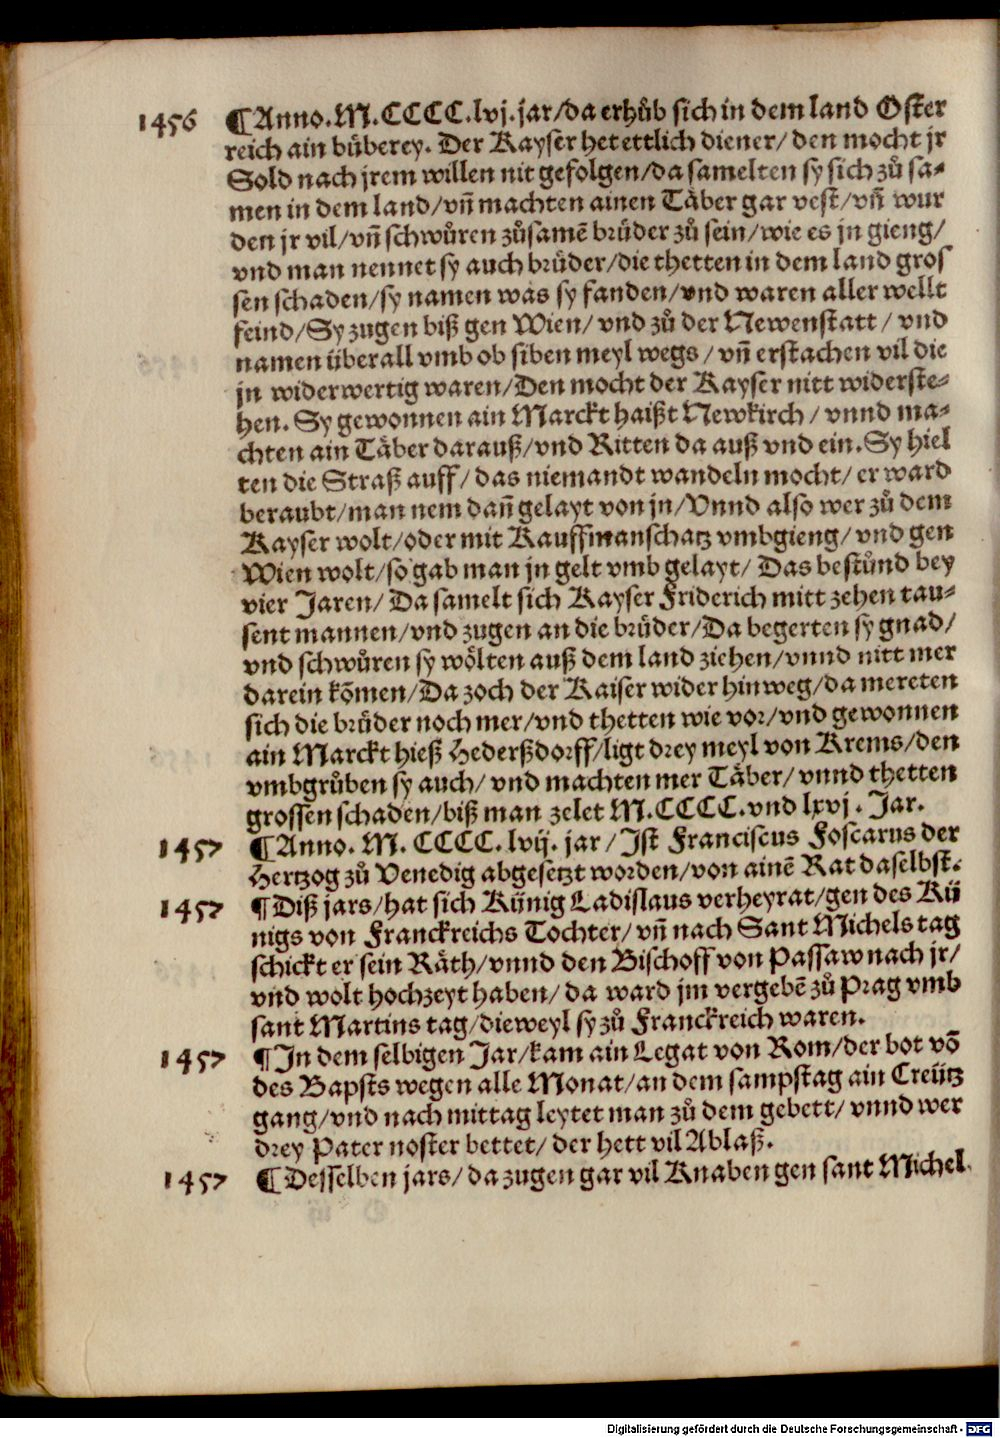 1456 ¶Anno.M.CCCC.lvj.jar/da erhůb sich in dem land Oster
reich ain bůberey. Der Kayser het ettlich diener/ den mocht jr
Sold nach jrem willen nit gefolgen/da samelten sy sich zů sa-
men in dem land/vñ machten ainen Täber gar vest/vñ wur
den jr vil/vñ schwůren zůsamē brüder zů sein/wie es jn gieng/
vnd man nennet sy auch brüder/die thetten in dem land gros
sen schaden/sy namen was sy fanden/vnd waren aller wellt
feind/Sy zugen biß gen Wien/ vnd zů der Newenstatt / vnd
namen überall vmb ob siben meyl wegs / vñ erstachen vil die
jn widerwertig waren/Den mocht der Kayser nitt widerste-
hen. Sy gewonnen ain Marckt haißt Newkirch / vnnd ma-
chten ain Täber darauß/vnd Ritten da auß vnd ein.Sy hiel
ten die Straß auff/ das niemandt wandeln mocht/ er ward
beraubt/man nem dañ gelayt von jn/Vnnd also wer zů dem
Kayser wolt/oder mit Kauffmanschatz vmbgieng/ vnd gen
Wien wolt/so gab man jn gelt vmb gelayt/ Das bestůnd bey
vier Jaren/ Da samelt sich Kayser Friderich mitt zehen tau-
sent mannen/vnd zugen an die brüder/Da begerten sy gnad/
vnd schwůren sy wölten auß dem land ziehen/vnnd nitt mer
darein kōmen/Da zoch der Kaiser wider hinweg/da mereten
sich die brüder noch mer/vnd thetten wie vor/vnd gewonnen
ain Marckt hieß Hederßdorff/ligt drey meyl von Krems/den
vmbgrůben sy auch/ vnd machten mer Täber/ vnnd thetten
grossen schaden/biß man zelet M.CCCC.vnd lxvj. Jar.
1457 ¶Anno. M. CCCC. lvij. jar / Jst Franciscus Foscarus der
Hertzog zů Venedig abgesetzt worden/von ainē Rat daselbst.
1457 ¶Diß jars/hat sich Künig Ladislaus verheyrat/gen des Kü
nigs von Franckreichs Tochter/ vñ nach Sant Michels tag
schickt er sein Räth/vnnd den Bischoff von Passaw nach jr/
vnd wolt hochzeyt haben/ da ward jm vergebē zů Prag vmb
sant Martins tag/dieweyl sy zů Franckreich waren.
1457 ¶Jn dem selbigen Jar/kam ain Legat von Rom/der bot vō
des Bapsts wegen alle Monat/an dem sampstag ain Creütz
gang/vnd nach mittag leytet man zů dem gebett/ vnnd wer
drey Pater noster bettet/ der hett vil Ablaß.
1457 ¶Desselben jars/ da zugen gar vil Knaben gen sant Michel.
Digitalisierung gefördert durch die Deutsche Forschungsgemeinschaft - DFG